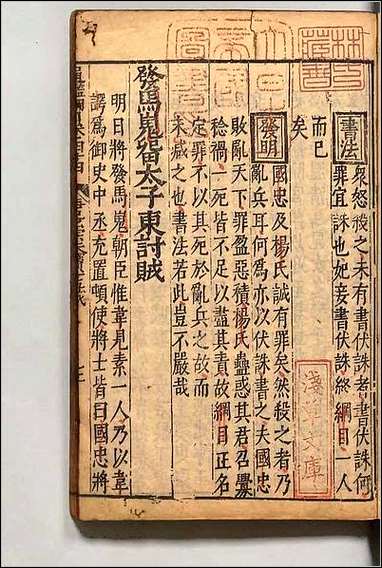 書法
衆怒殺之未有書伏誅者書伏誅何
罪宜誅也妃妾書伏誅終綱目一人
而已
矣
發明
國忠及楊氏誠有罪矣然殺之者乃
亂兵耳何為亦以伏誅書之夫國忠
敗亂天下罪盈惡積楊氏蠱惑其君召釁
稔禍一死皆不足以盡其責故綱目正名
定罪不以其死於亂兵之故而
末減之也書法若此豈不嚴哉
發馬嵬留太子東討賊
明日將發馬嵬朝臣惟韋見素一人乃以韋
諤為御史中丞充置頓使將士皆曰國忠將
淺草文庫